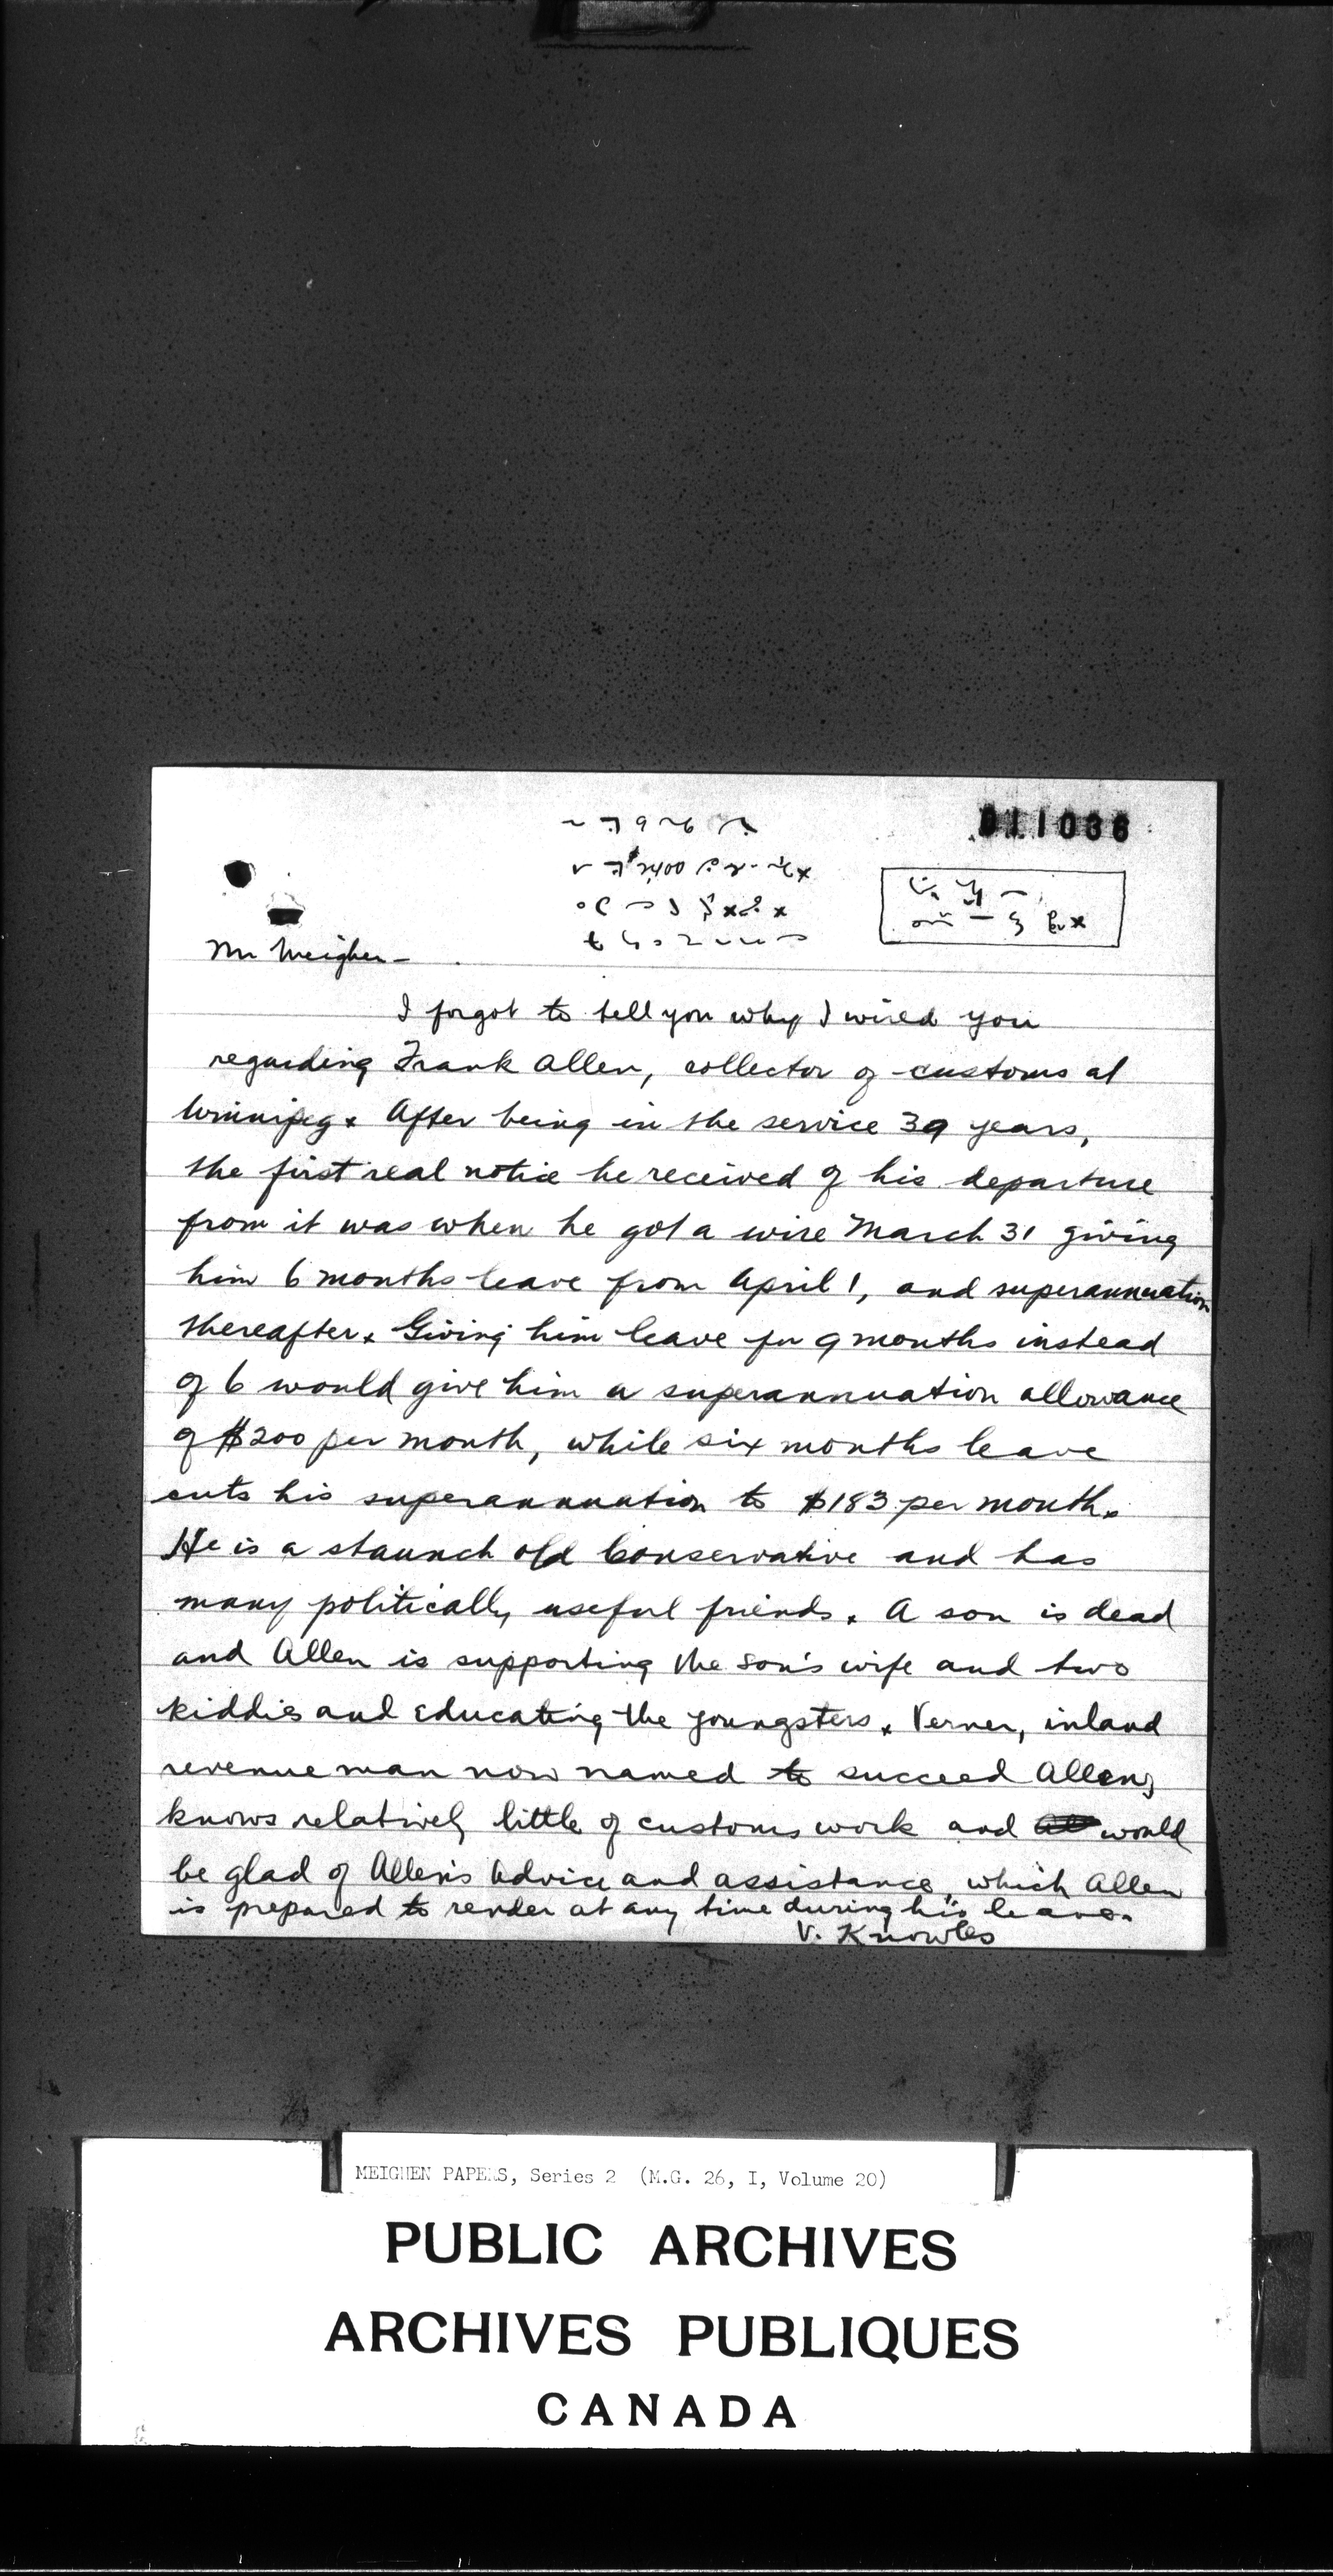 011036
Mr Meighen —
I forgot to tell you why I wired you
regarding Frank Allen, collector of customs at
Winnipeg x After being in the service 39 years,
the first real notice he received of his departure
from it was when he got a wire March 31 giving
him 6 months leave from April 1, and superannuation
thereafter x Giving him leave for 9 months instead
of 6 would give him a superannuation allowance
of $200 per month, while six months leave
cuts his superannuation to $183 per month x
He is a staunch old Conservative and has
many politically useful friends x A son is dead
and Allen is supporting the son's wife and two
kiddies and educating the youngsters x Verner, inland
revenue man now named to succeed Allen,
knows relatively little of customs work and would
be glad of Allen's advice and assistance, which Allen
is prepared to render at any time during his leave.
V. Knowles
MEIGHEN PAPERS, Series 2 (M.G. 26, I, Volume 20)
PUBLIC ARCHIVES
ARCHIVES PUBLIQUES
CANADA